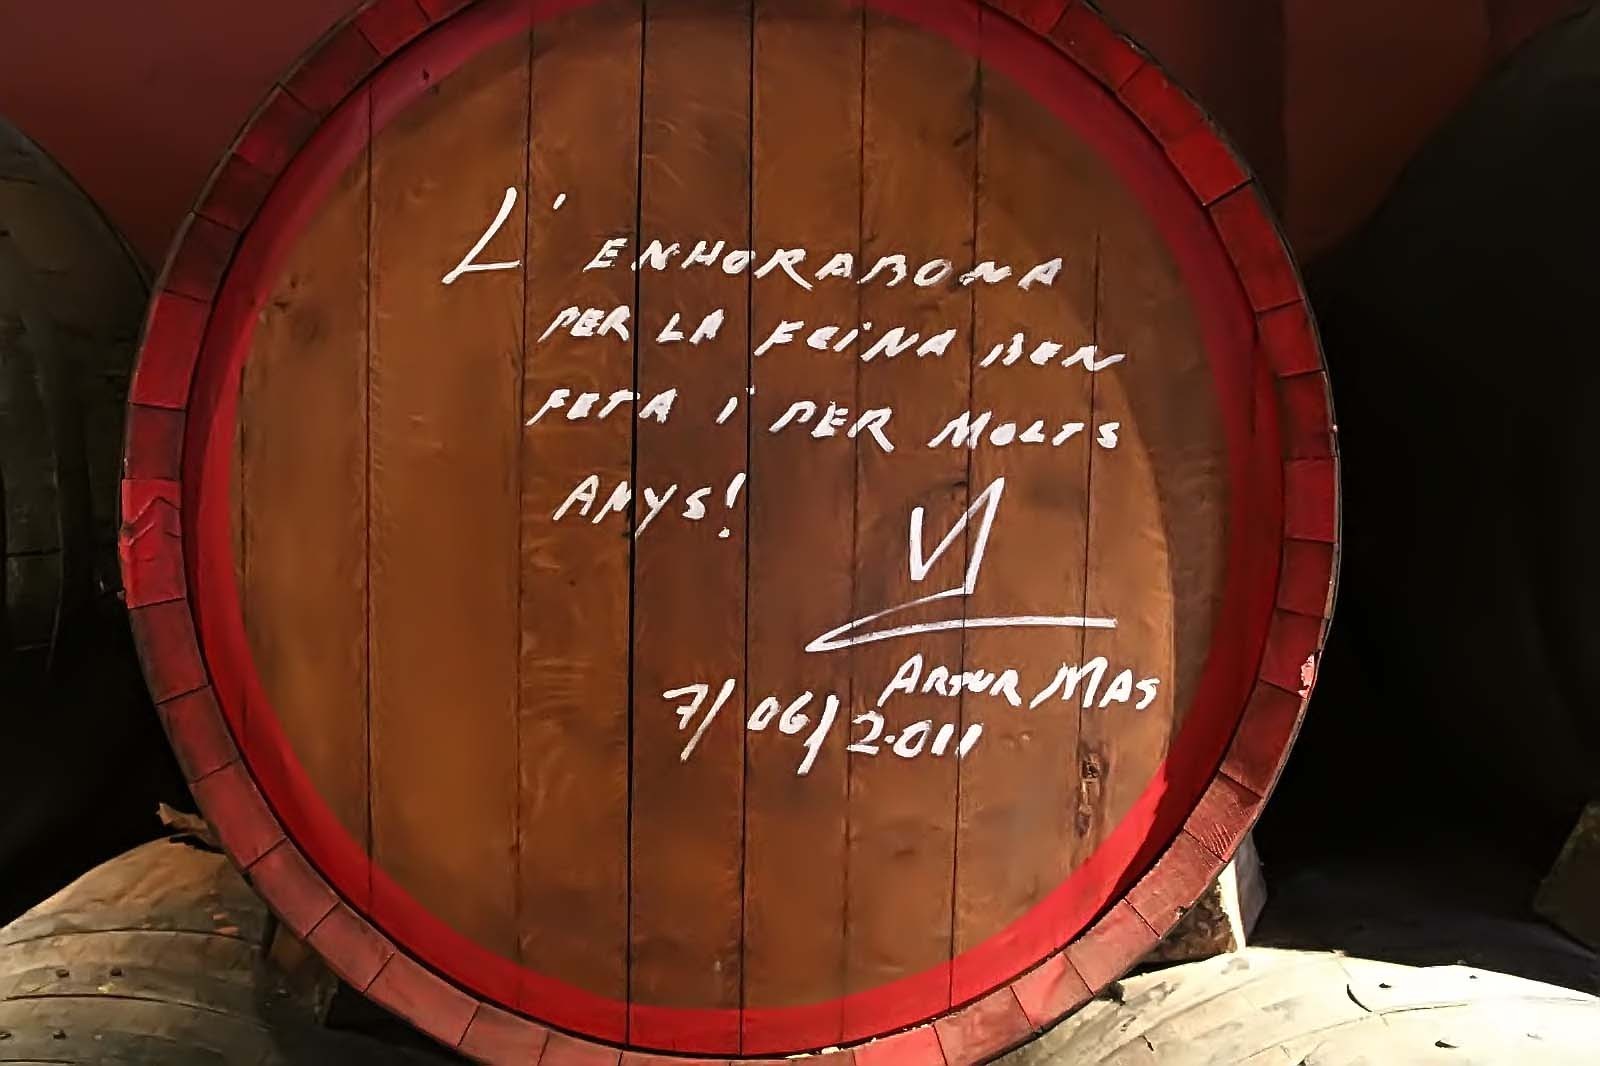 L'ENHORABONA
PER LA FEiNA BEN
FETA i PER MOLTS
ANYS!
ARTUR MAS
7/06/2.011